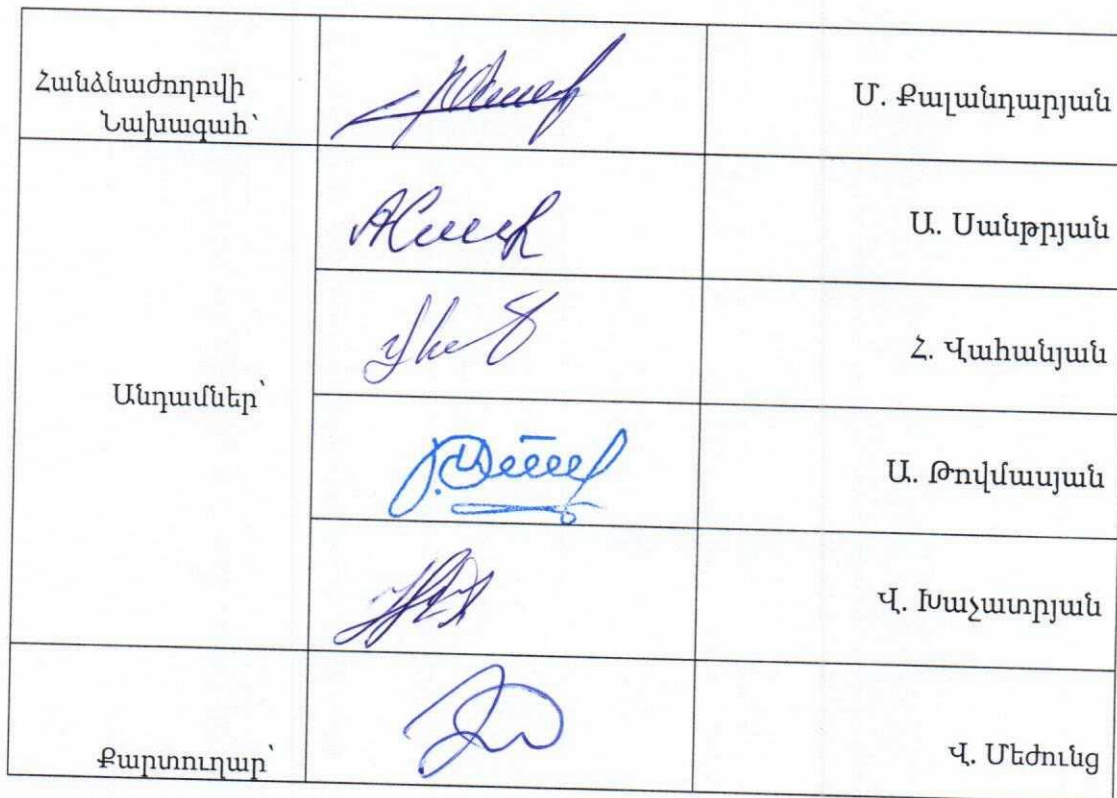 Հանձնաժողովի
Նախագահ՝
Մ. Քալանդարյան
Անդամներ՝
Ա. Սանթրյան
Հ. Վահանյան
Ա. Թովմասյան
Վ. Խաչատրյան
Քարտուղար՝
Վ. Մեժունց